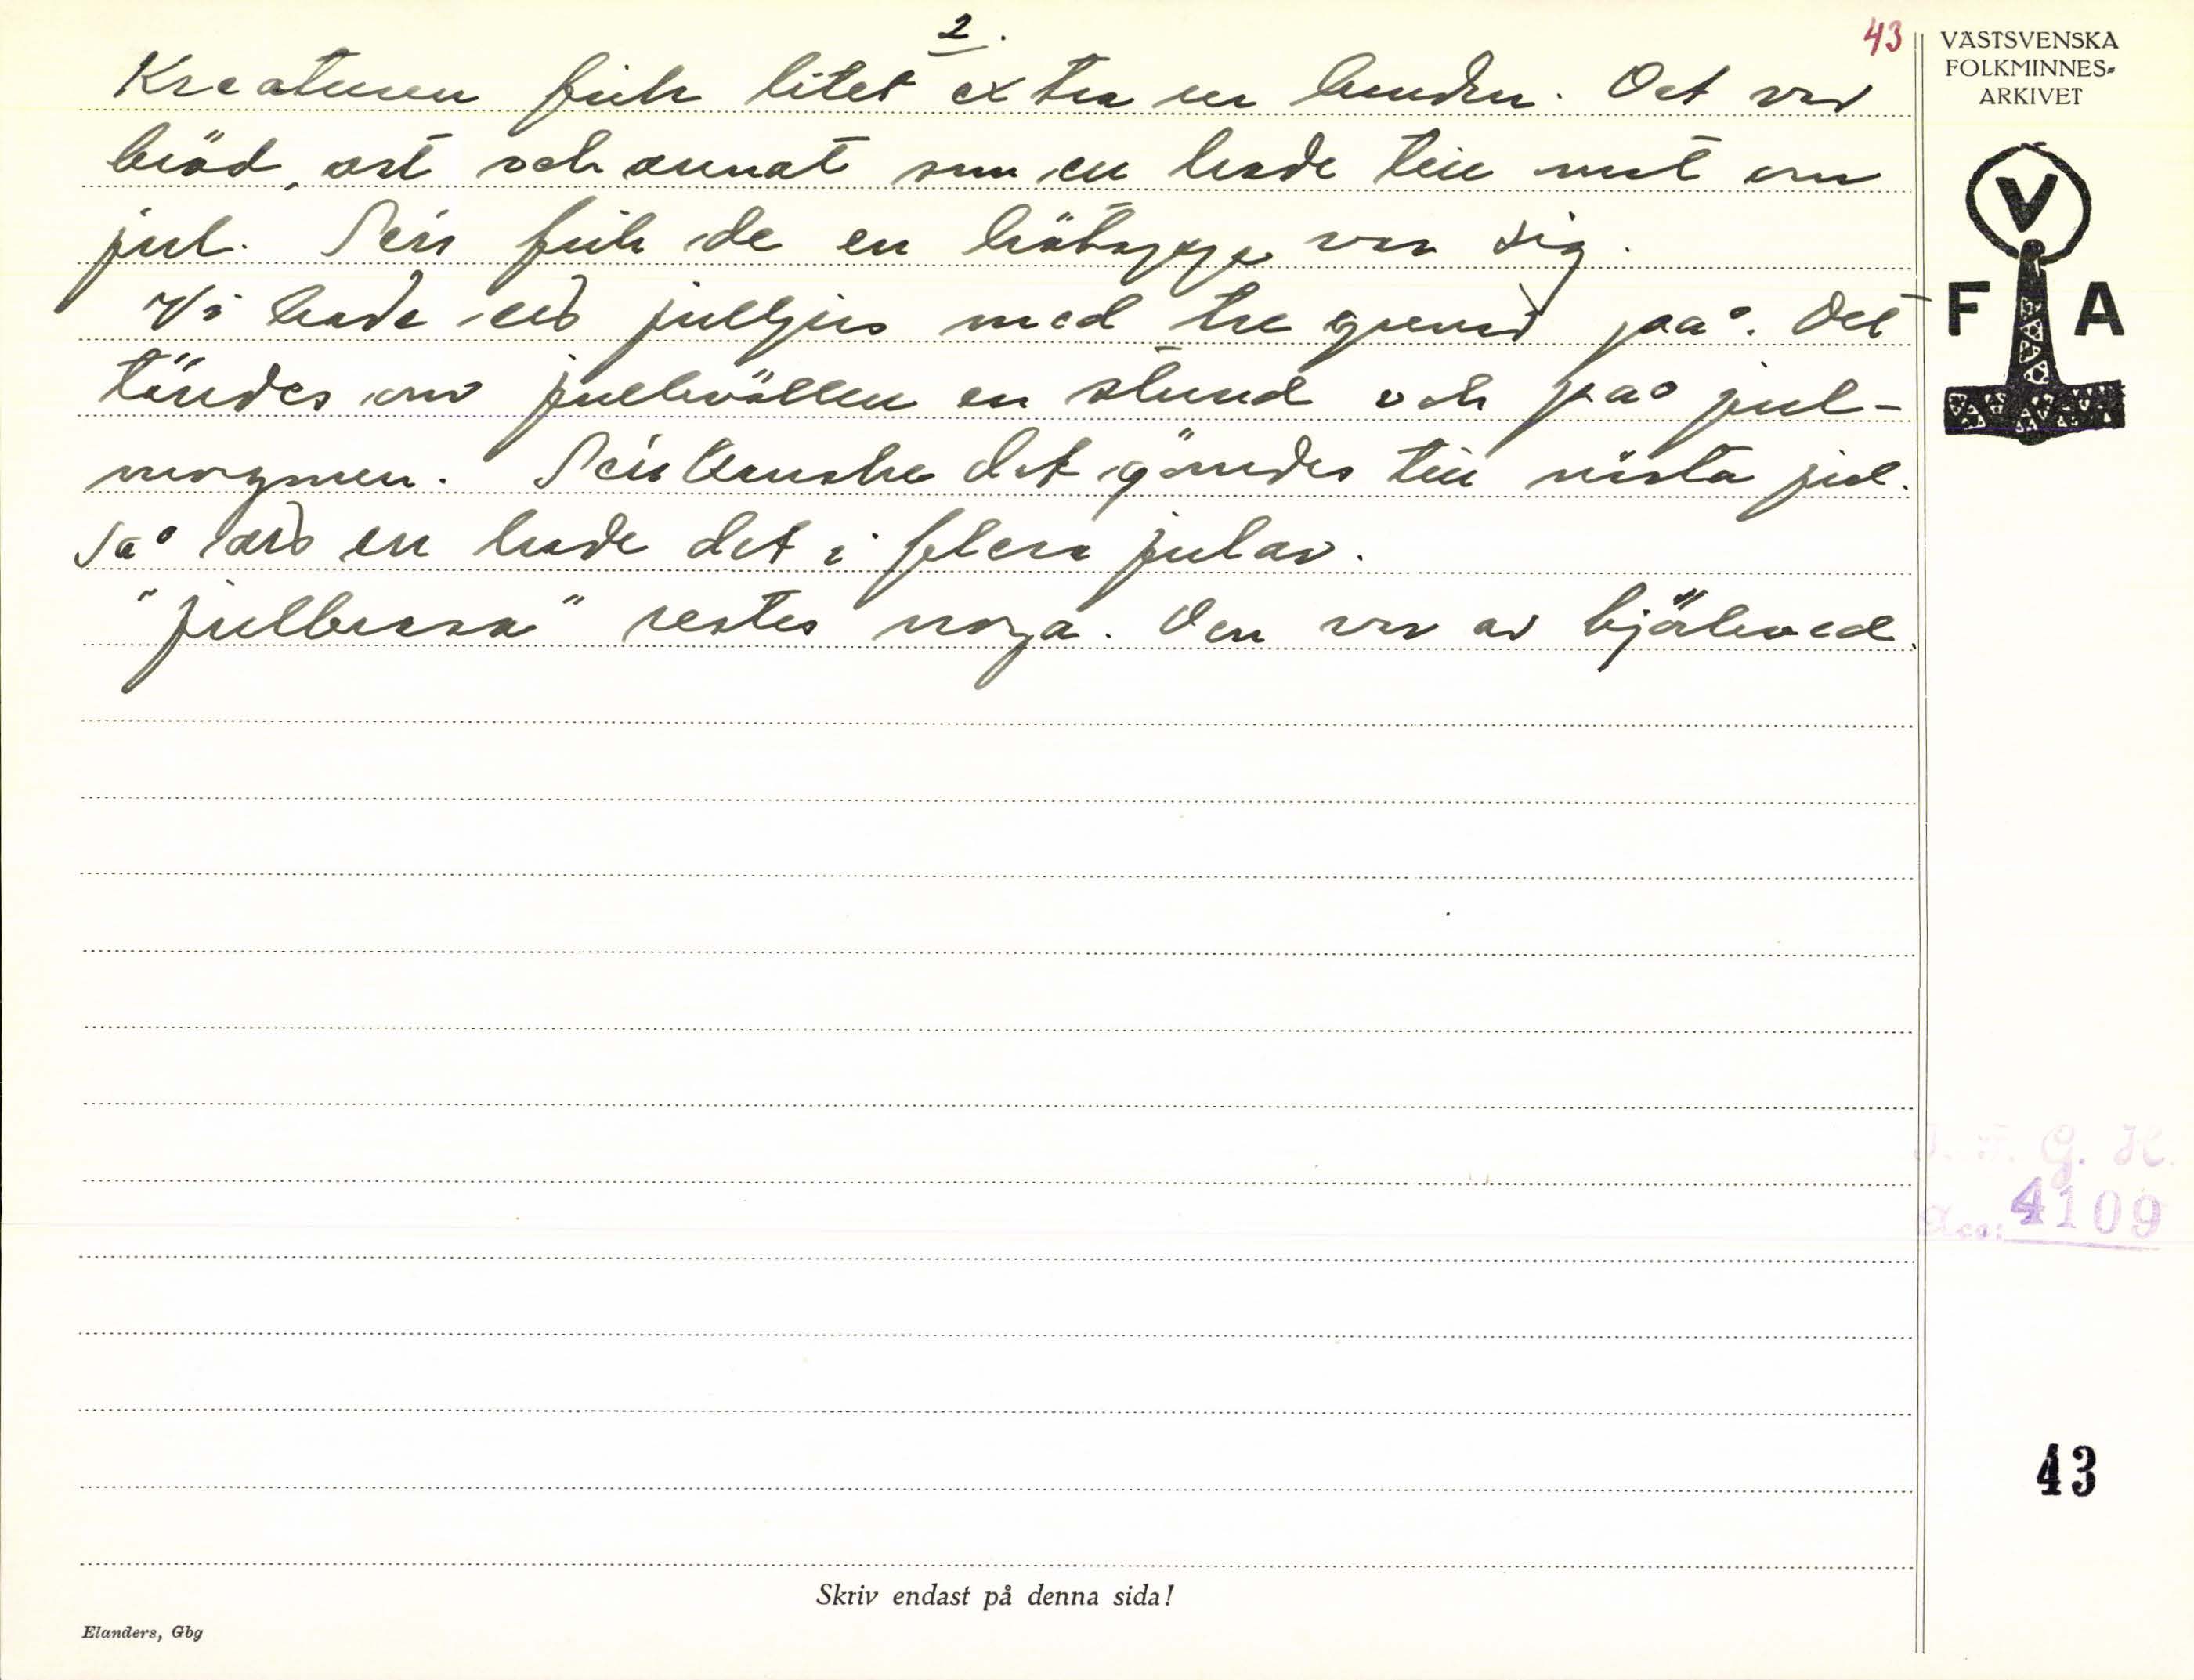 2.
43
Kreaturen fick litet extra ur handen. Det var
bröd, ost och annat som en hade till mat om
jul. Sen fick de en hötapp var sig.
Vi hade ett julljus med tre grenar på. Det
tändes om julkvällen en stund och på jul-
morgonen. Sen kanske det gömdes till nästa jul.
Så att en hade det i flera jular.
"Julbrasa" restes noga. Den var av björkved.
VÄSTSVENSKA
FOLKMINNES-
ARKIVET
V
F A
I. F. G. H.
Acc: 4109
43
Skriv endast på denna sida!
Elanders, Gbg